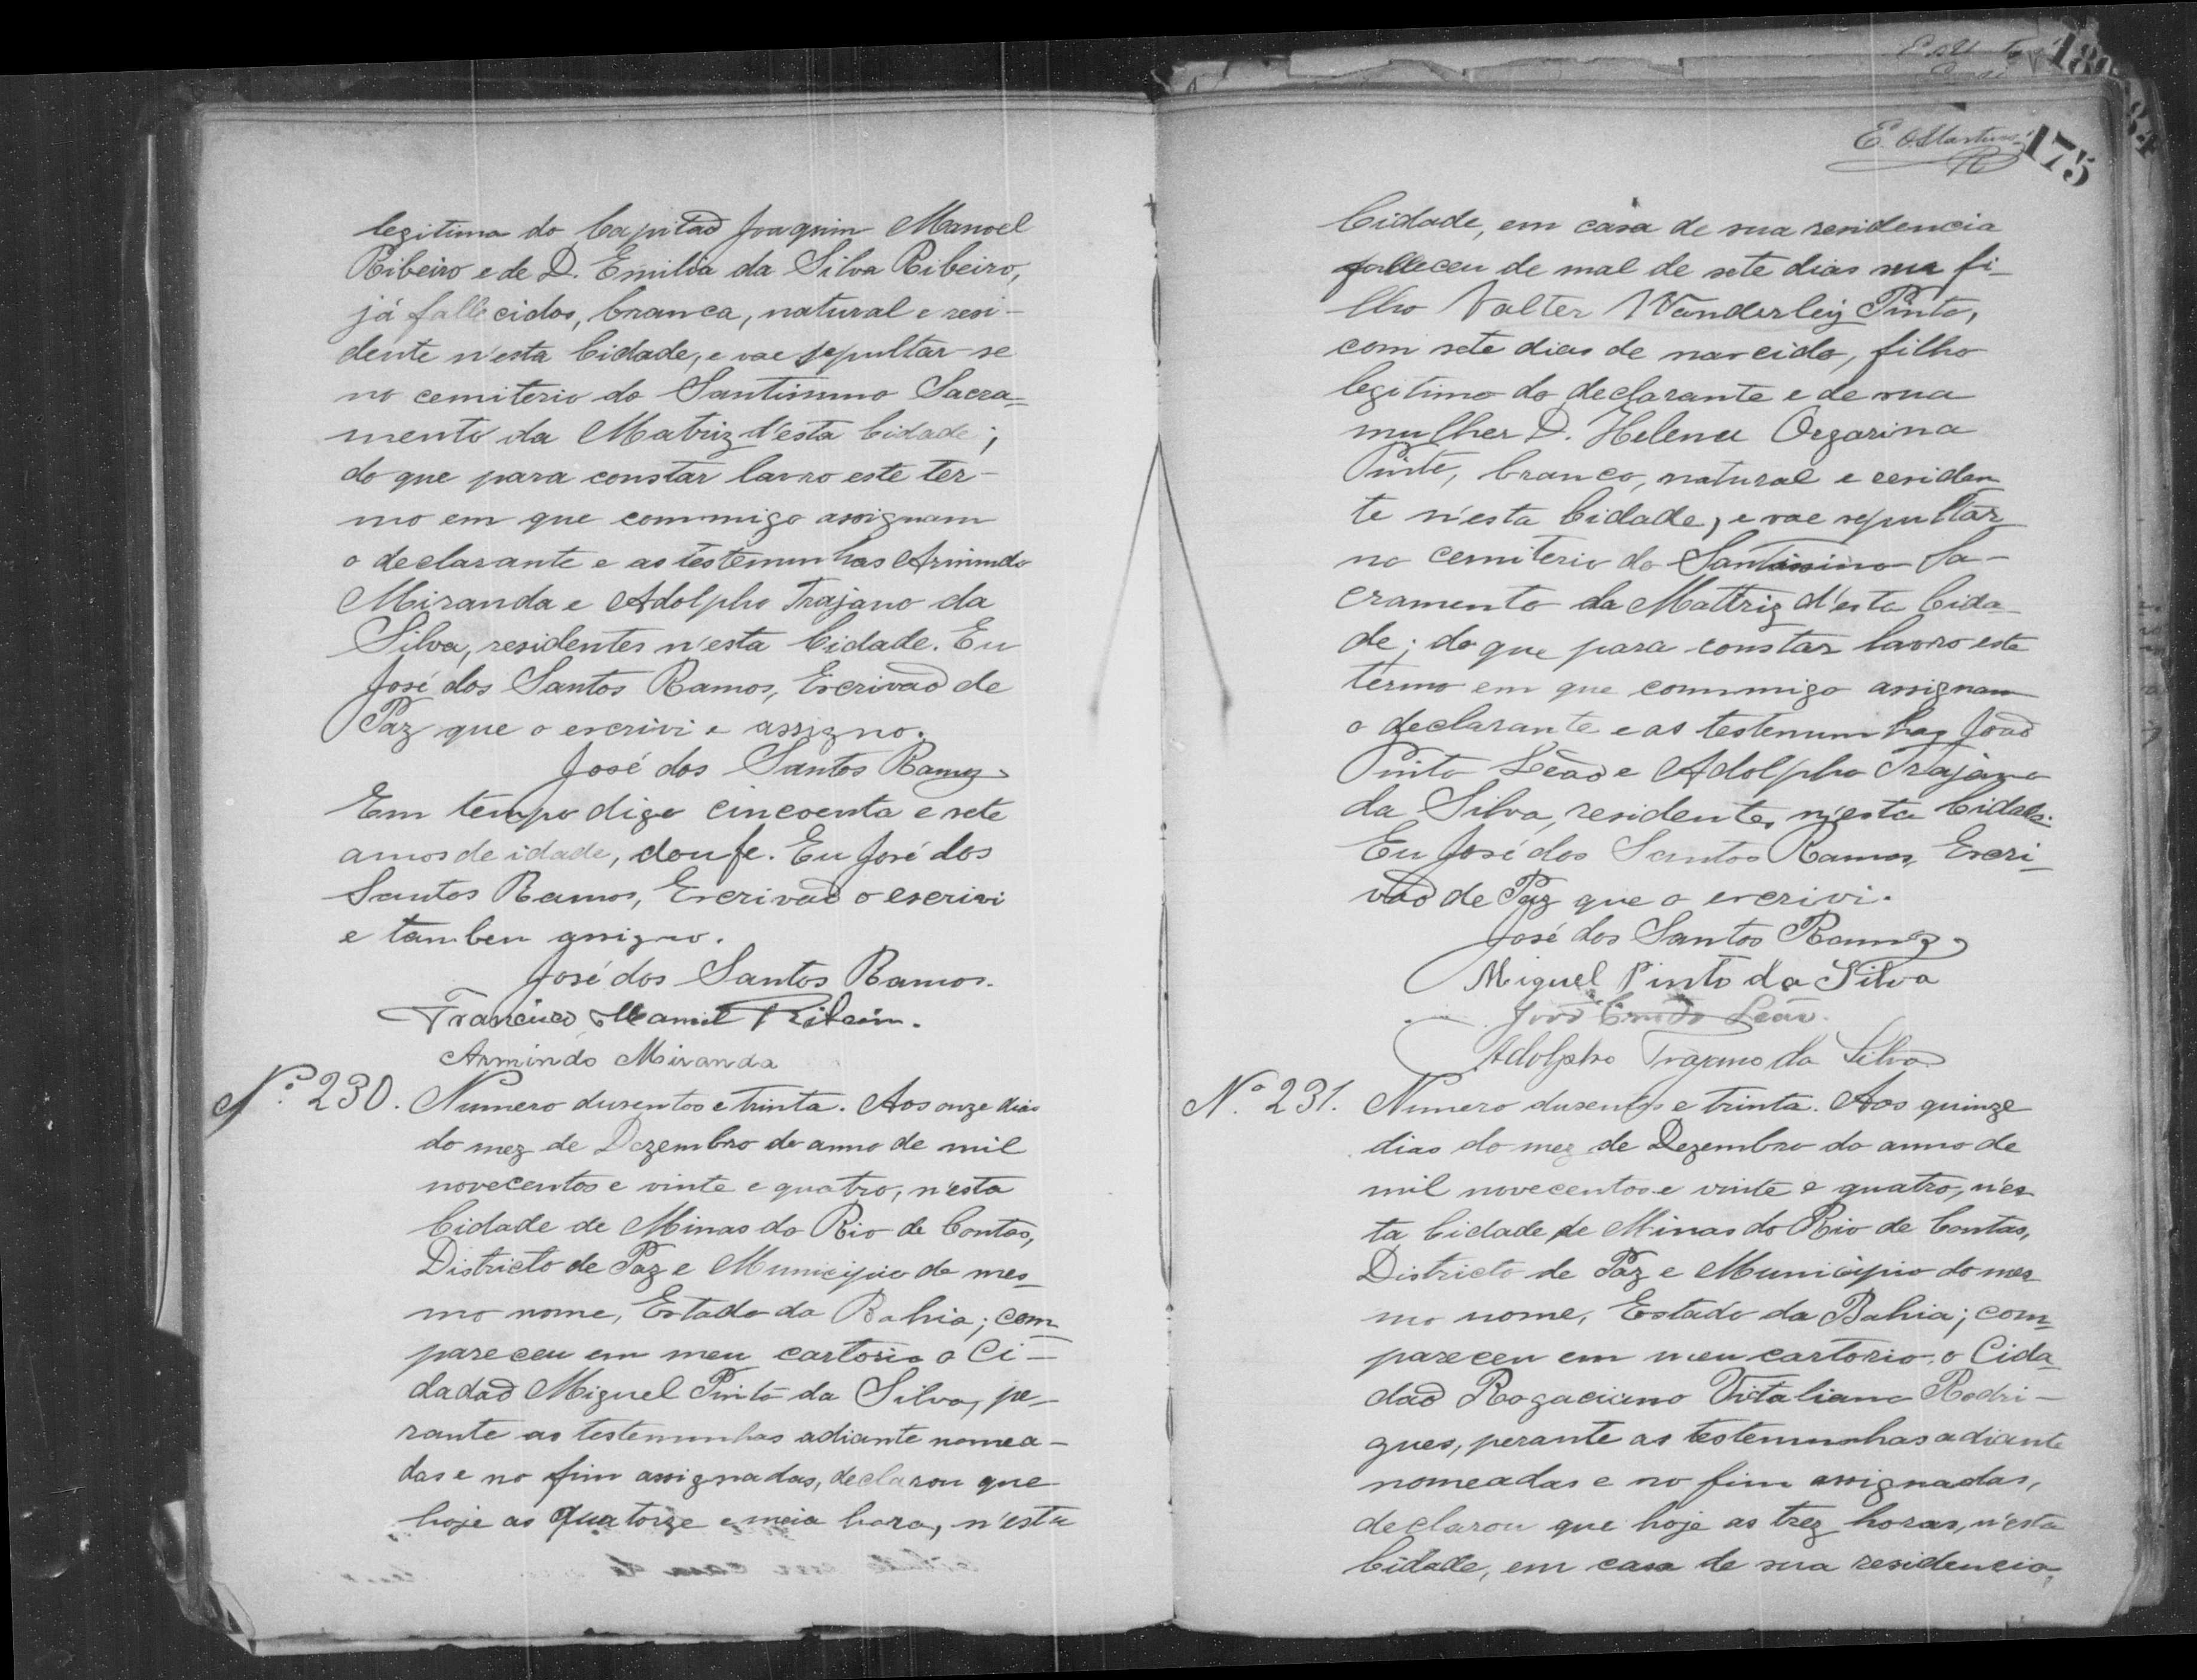 legitima do Capitão Joaquim Manoel
Ribeiro e de D. Emilia da Silva Ribeiro,
já fallecidos, branca, natural e resi-
dente n'esta Cidade, e vae sepultar-se
no cemiterio do Santissimo Sacra=
mento da Matriz d'esta Cidade;
do que para constar lavro este ter-
mo em que commigo assignam
o declarante e as testemunhas Armindo
Miranda e Adolpho Trajano da
Silva, residentes n'esta Cidade. Eu
José dos Santos Ramos, Escrivão de
Paz que o escrivi e assigno.
José dos Santos Ramos
Em tempo digo cincoenta e sete
annos de idade, dou fe. Eu José dos
Santos Ramos, Escrivão o escrivi
e tambem assigno.
José dos Santos Ramos.
Francisco Manoel Ribeiro.
Armindo Miranda
Nº 230. Numero dusentos e trinta. Aos onze dias
do mez de Dezembro do anno de mil
novecentos e vinte e quatro, n'esta
Cidade de Minas do Rio de Contas,
Districto de Paz e Municipio do mes-
mo nome, Estado da Bahia; com-
pareceu em meu cartorio o Ci-
dadão Miguel Pinto da Silva, pe-
rante as testemunhas adiante nomea-
das e no fim assignadas, declarou que
hoje as quatorze e meia hora, n'esta
E. O. Martins
175
Cidade, em casa de sua residencia
falleceu de mal de sete dias seu fi-
lho Valter Wanderley Pinto,
com sete dias de nascido, filho
legitimo do declarante e de sua
mulher D. Helena Ozarina
Pinto, branco, natural e residen
te n'esta Cidade, e vae sepultar
no cemiterio do Santissimo Sa-
cramento da Mattriz d'esta Cida-
de; do que para constar lavro este
termo em que commigo assignam
o declarante e as testemunhas João
Pinto Leão e Adolpho Trajano
da Silva, residentes n'esta Cidade.
Eu José dos Santos Ramos, Escri-
vão de Paz que o escrivi.
José dos Santos Ramos
Miguel Pinto da Silva
João Leão.
Adolpho Trajano da Silva
Nº 231. Numero dusentos e trinta. Aos quinze
dias do mez de Dezembro do anno de
mil novecentos e vinte e quatro, n'es
ta Cidade de Minas do Rio de Contas,
Districto de Paz e Municipio do mes
mo nome, Estado da Bahia; com-
pareceu em meu cartorio o Cida-
dão Rogaciano Vitaliano Rodri-
gues, perante as testemunhas adiante
nomeadas e no fim assignadas,
declarou que hoje as trez horas, n'esta
Cidade, em casa de sua residencia,